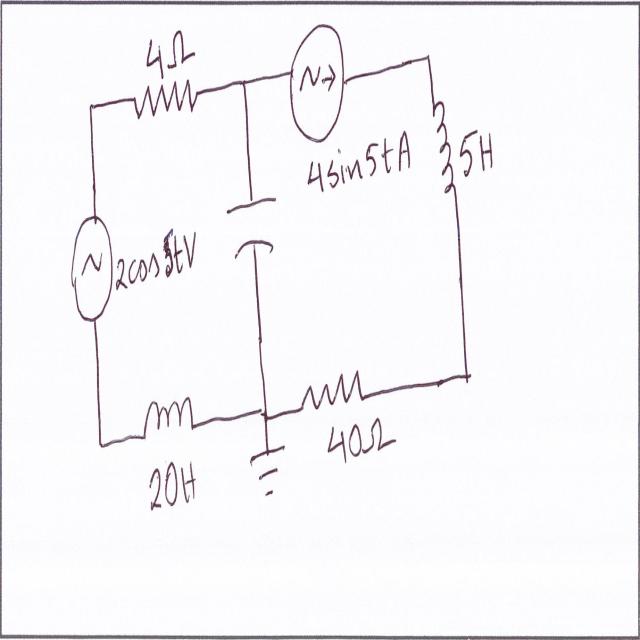 4Ω
4sin5tA
5H
2cos5tV
20H
40Ω